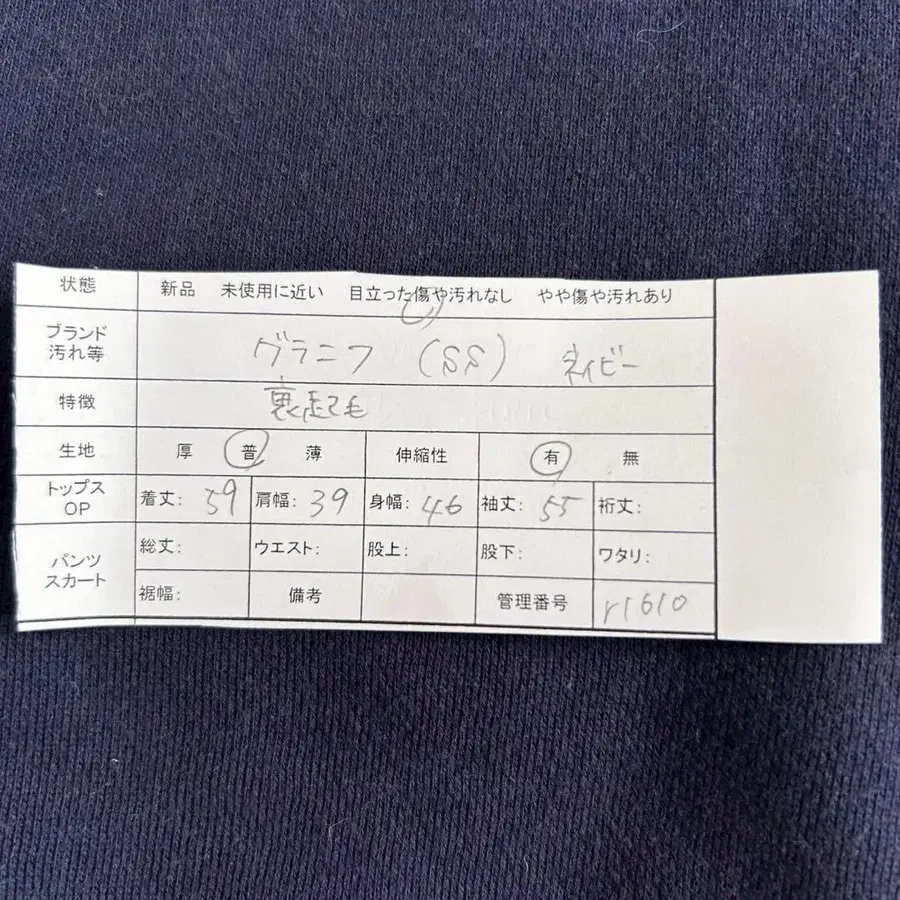 状態 新品 未使用に近い 目立った傷や汚れなし やや傷や汚れあり
ブランド
汚れ等 グラニフ (SS) ネイビー
特徴 裏起毛
生地 厚 普 薄 伸縮性 有 無
トップス
OP 着丈: 59 肩幅: 39 身幅: 46 袖丈: 55 裄丈:
パンツ
スカート 総丈: ウエスト: 股上: 股下: ワタリ:
裾幅: 備考 管理番号 r1610